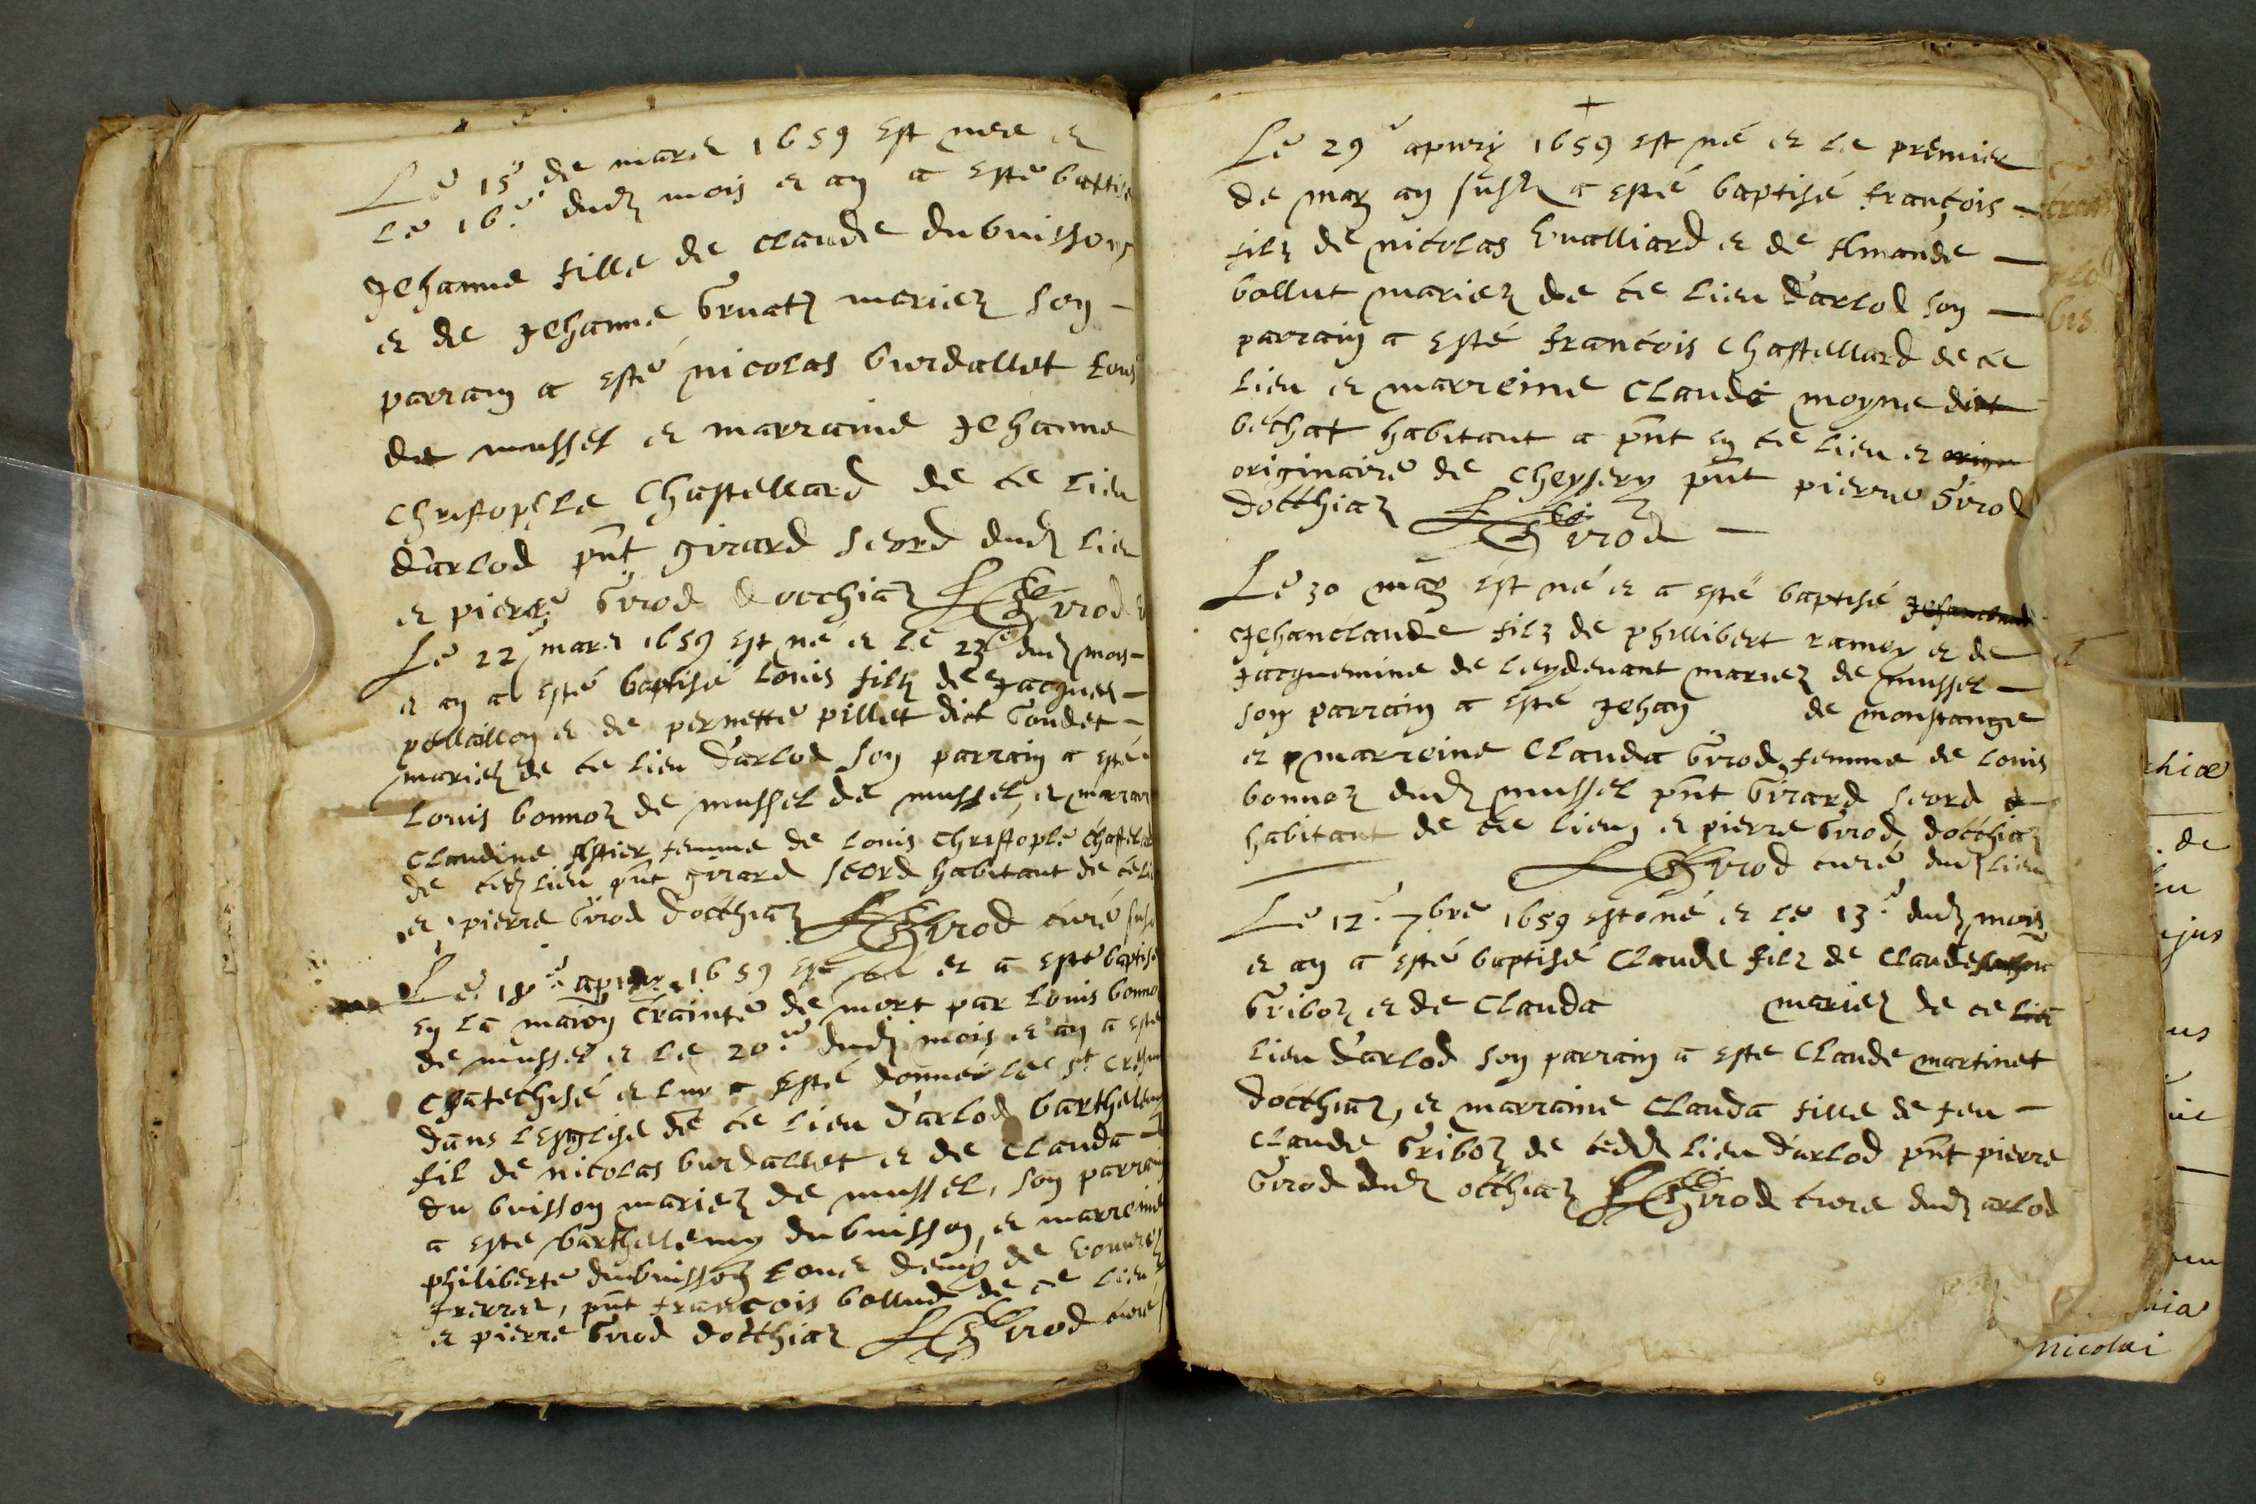 Le 15e de mars 1659 est nee et
le 16e dudz mois et an a este baptise
Jehanne fille de claude dubuisson
et de Jehanne Gruatz mariez son
parrain a esté nicolas burdallet tous
de mussel et marraine Jehanne
Christophle Chastellard de ce lieu
d'arlod pnt girard seord dudz lieu
et pierre Girod docthiaz Girod
Le 22e mars 1659 est né et le 23e dudz mois
et an a esté baptisé Louis filz de Jacques
pellaillon et de pernette pillet dict Goudet
mariez de ce lieu d'arlod son parrain a esté
Louis bonnoz de mussel de mussel, et marrain
Claudine femme de Louis Christople Chastelard
de cedz lieu pnt girard seord habitant de ce li
et pierre Girod docthiaz Girod curé
Le 18e apvry 1659 est né et a este baptisé
en la crainte de mort par Louis bonno
de mussel et le 20e dudz mois et an a este
Chatechisé et luy a esté donné le st Cresme
dans lesglise de ce lieu d'arlod barthellemy
fil de nicolas burdallet et de Clauda
du buisson mariez de mussel, son parrain
a este barthellemy dubuisson, et marreine
philiberte dubuisson tous deux de
frerres, pnt francois bollud de ce lieu
et pierre Girod docthiaz Girod curé
Le 29e apvry 1659 est né et le premier
de may an susdz a esté baptisé françois
filz de nicolas Evalliard et de Amande
bollut mariez de ce lieu d'arlod son
parrain a esté françois Chastellard de ce
lieu et marreine Clauda moyne dict
béchat habitant a pnt en ce lieu et
originaire de Cheysery pnt pierre Girod
docthiaz Girod
Le 30 may est né et a esté baptisé
Jehanclaude filz de phillibert ramey et de
Jacquemine de Leydevant mariez de mussel
son parrain a esté Jehan de monstange
et marreine Clauda Girod femme de Louis
bonnoz dudz mussel pnt Girard seord
habitant de ce lieu, et pierre Girod docthiaz
Girod curé dudz lieu
Le 12e 7bre 1659 est né et le 13e dudz mois
et an a esté baptisé Claude filz de Claude
Griboz et de Clauda mariez de ce
lieu d'arlod son parrain a este Claude martinet
docthiaz, et marraine Clauda fille de feu
Claude Griboz de cedz lieu d'arlod pnt pierre
Girod dudz octhiaz Girod cure dudz arlod
nicolai